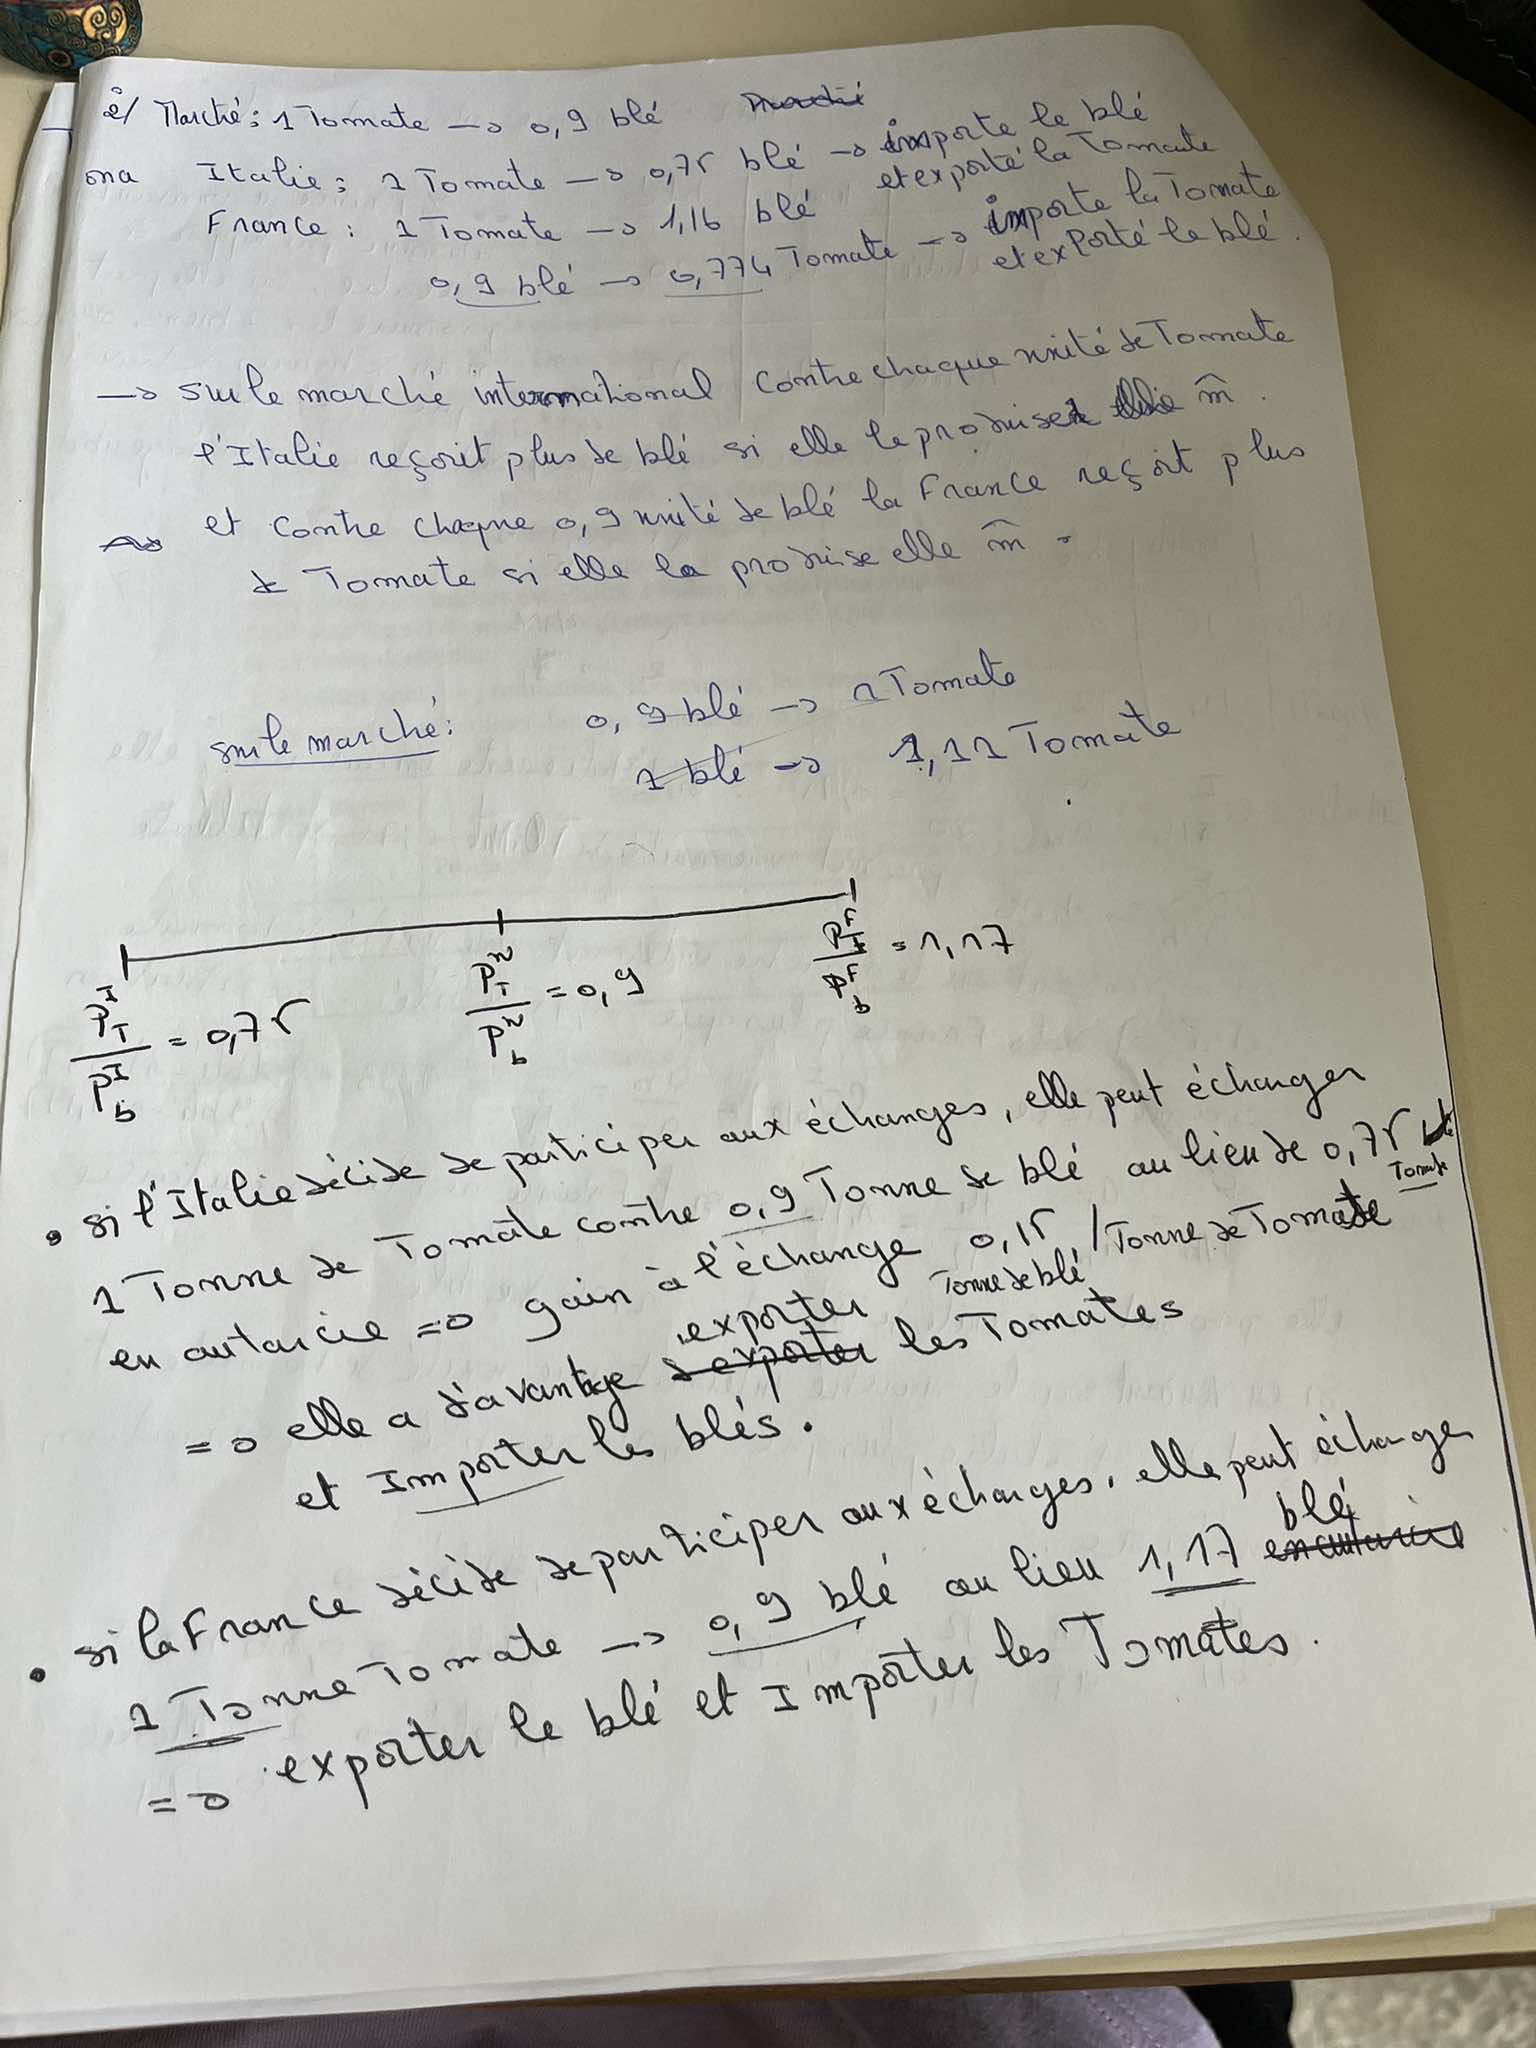 2/ Marché : 1 Tomate → 0,9 blé
ona Italie : 1 Tomate → 0,75 blé → importe le blé
et exporté la Tomate
France : 1 Tomate → 1,16 blé → importe la Tomate
et exporté le blé.
0,9 blé → 0,774 Tomate
→ sur le marché international contre chaque unité de Tomate
l'Italie reçoit plus de blé si elle le produise elle m̂.
et contre chaque 0,9 unité de blé la France reçoit plus
de Tomate si elle la produise elle m̂.
sur le marché : 0,9 blé → 1 Tomate
1 blé → 1,11 Tomate
P_T^I / P_b^I = 0,75
P_T^N / P_b^N = 0,9
P_T^F / P_b^F = 1,17
• si l'Italie décide de participer aux échanges, elle peut échanger
1 Tonne de Tomate contre 0,9 Tonne de blé au lieu de 0,75
en autarcie => gain à l'échange 0,15 Tonne de blé / Tonne de Tomate
=> elle a d'avantage exporter les Tomates
et Importer les blés.
• si la France décide de participer aux échanges, elle peut échanger
1 Tonne Tomate → 0,9 blé au lieu 1,17 blé
=> exporter le blé et Importer les Tomates.